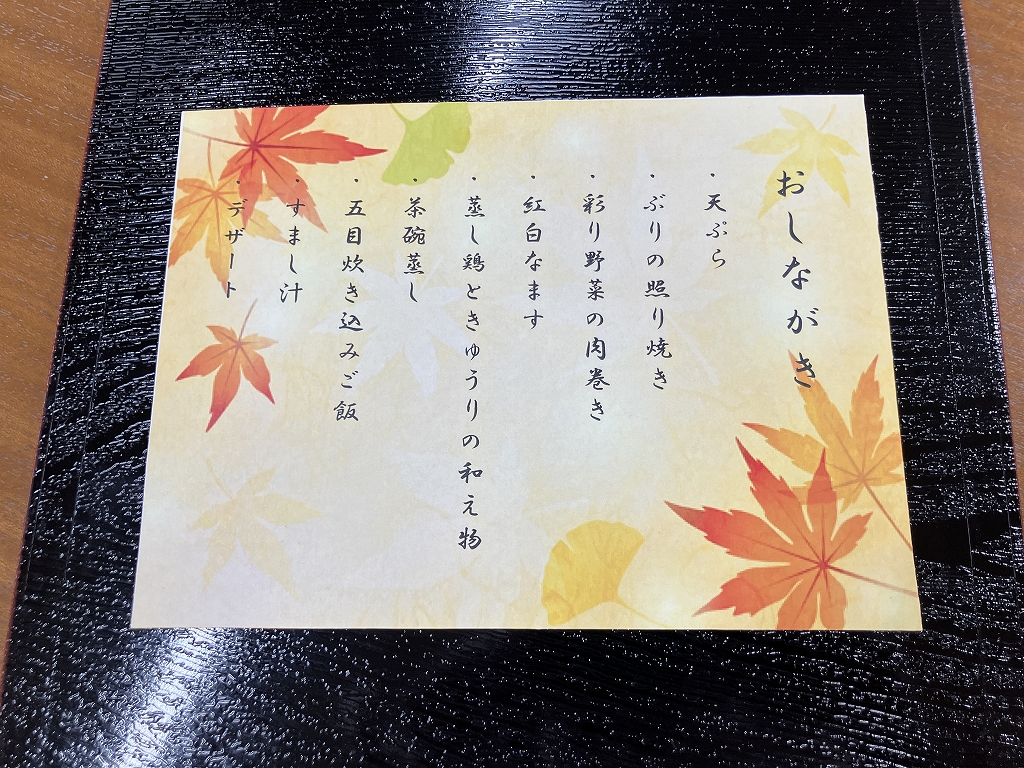 おしながき
・天ぷら
・ぶりの照り焼き
・彩り野菜の肉巻き
・紅白なます
・蒸し鶏ときゅうりの和え物
・茶碗蒸し
・五目炊き込みご飯
・すまし汁
・デザート